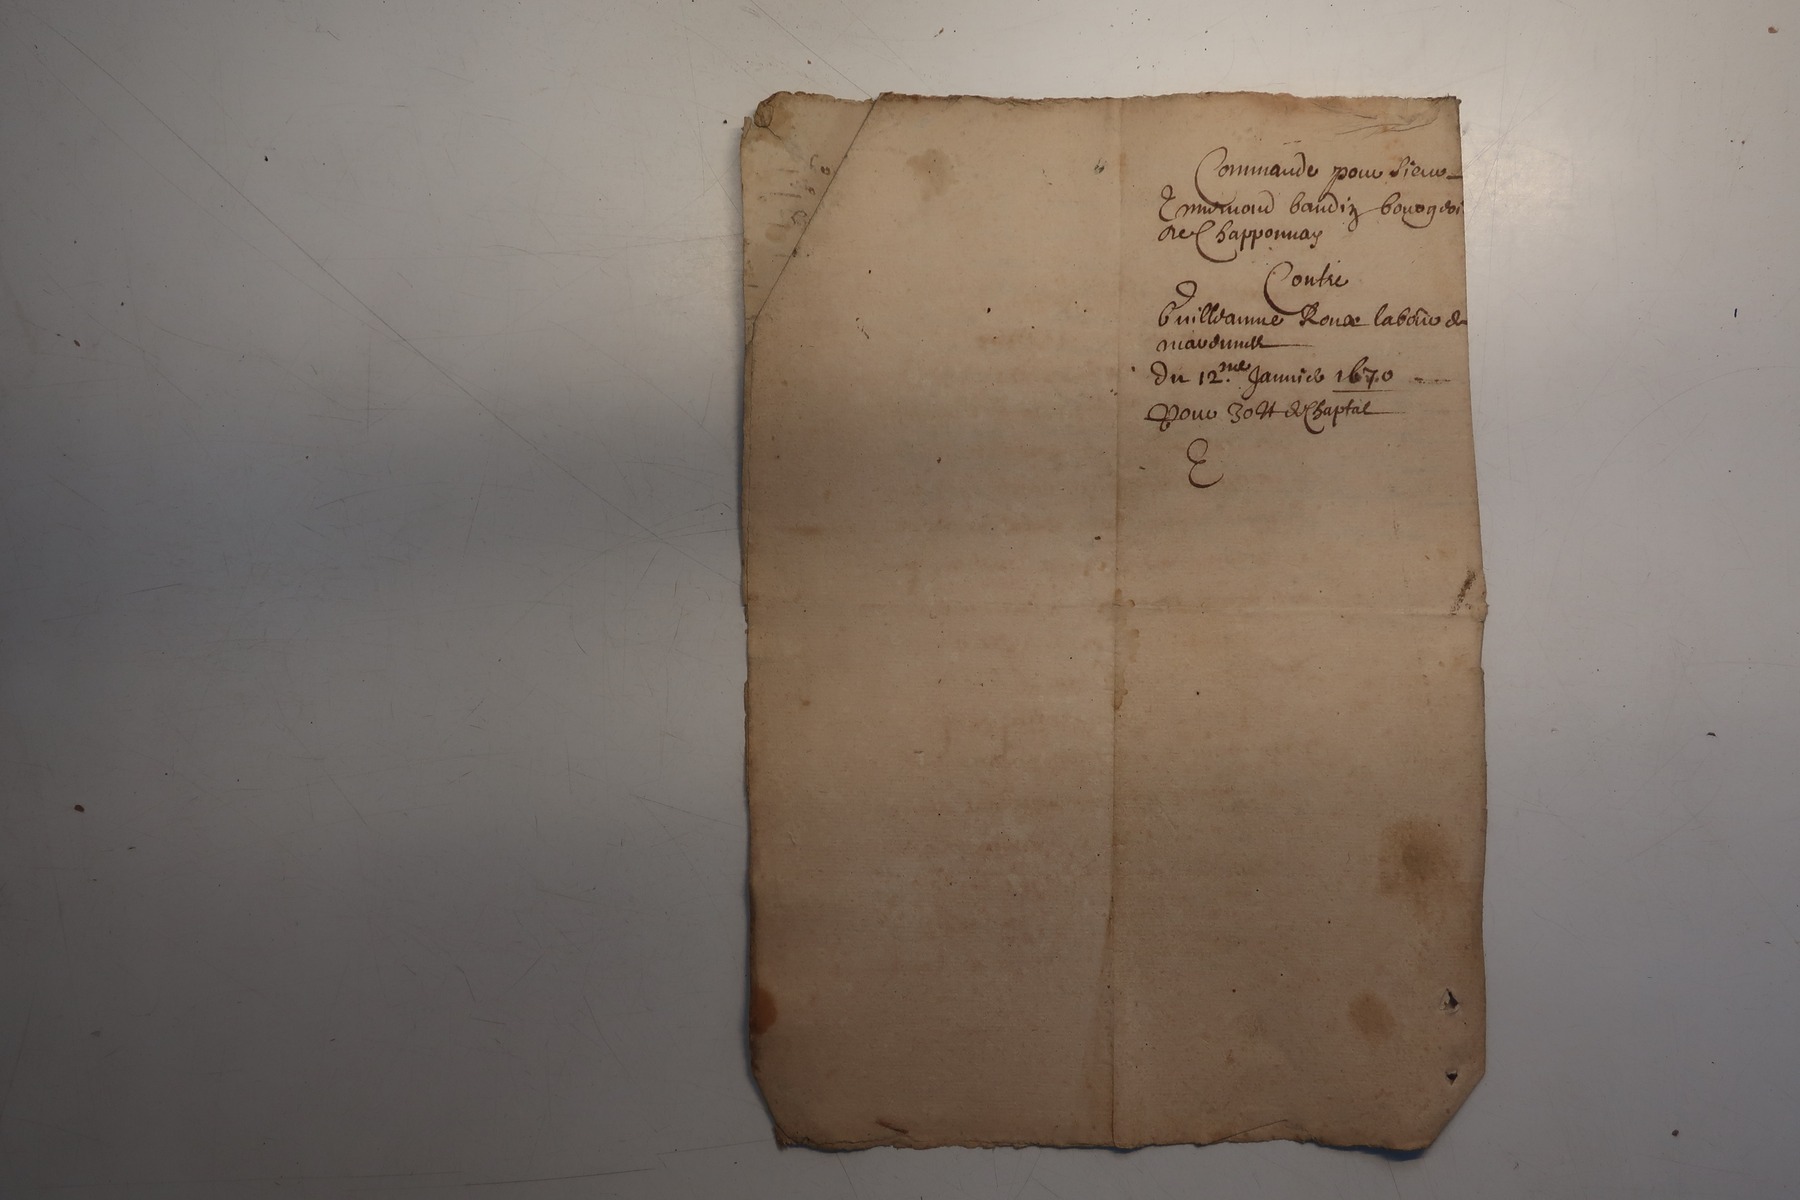 Commande pour Sieur
Ennemond baudin bourgeoi
de Chapponnay
Contre
Guilleaume Roux labour de
marennes
du 12.me Janvier 1670
pour 30 ₶ de Chaptal
E